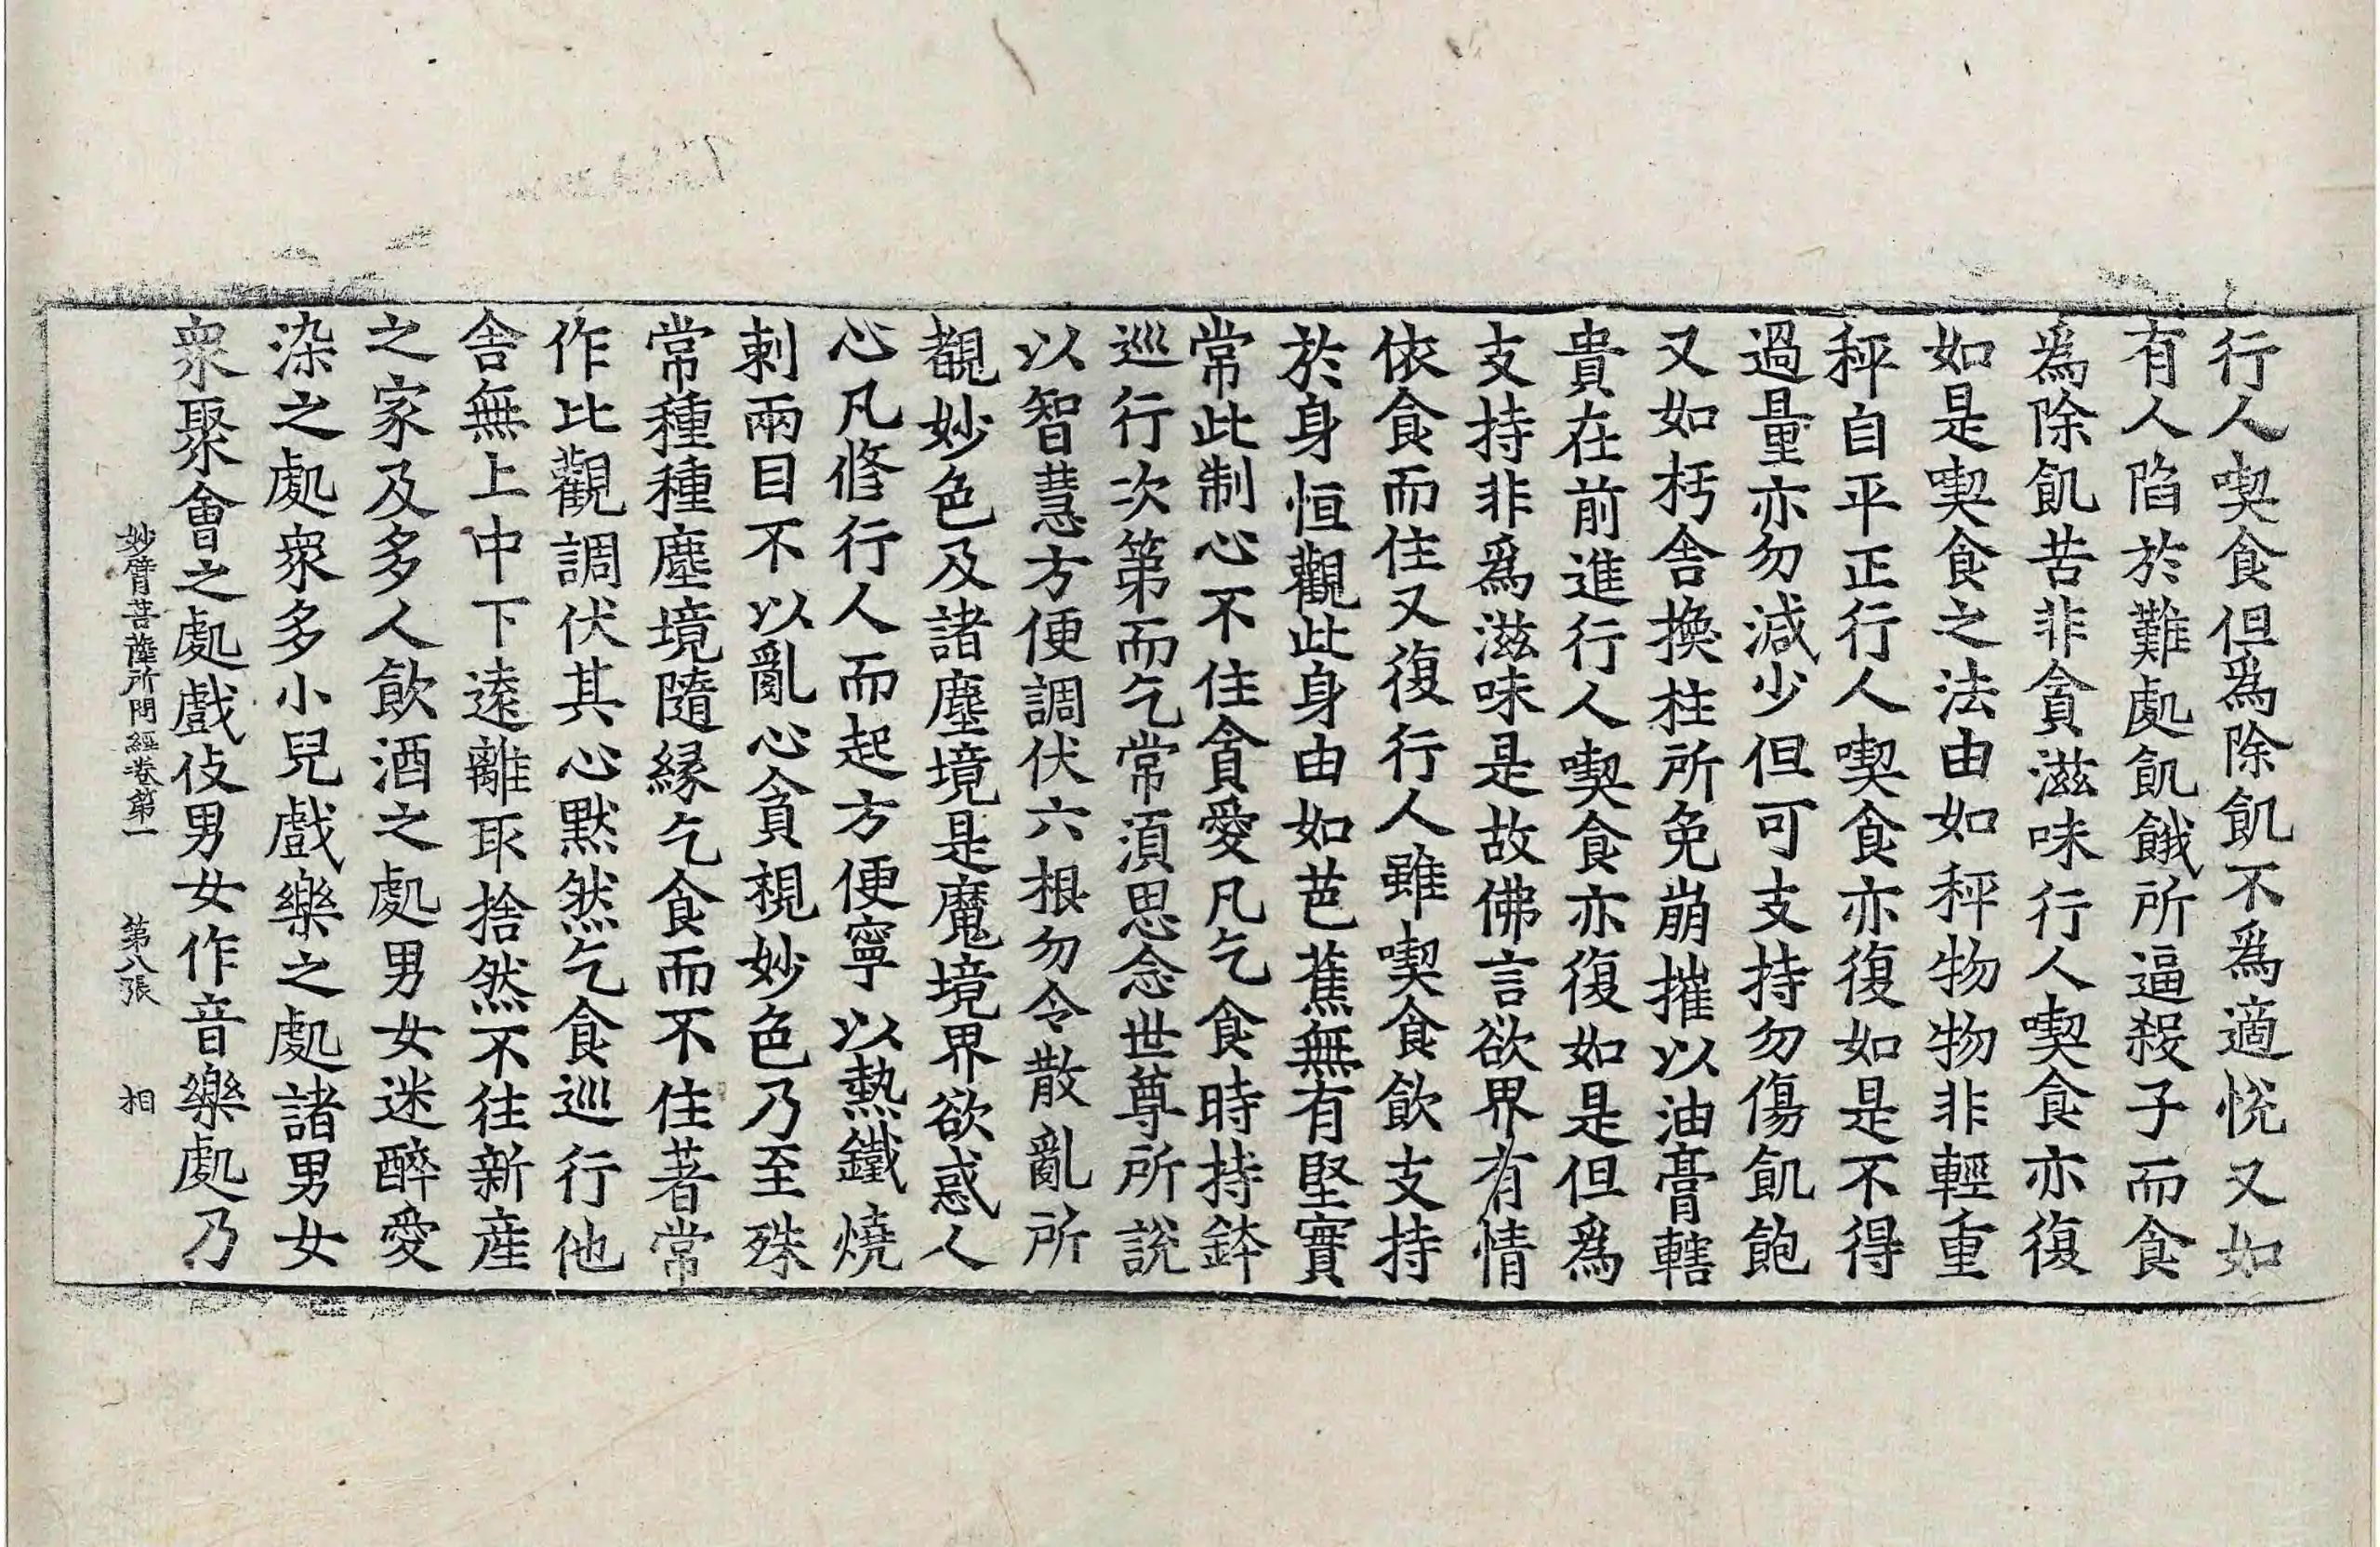 行人喫食但爲除飢不爲適悅又如
有人陷於難處飢餓所逼殺子而食
爲除飢苦非貪滋味行人喫食亦復
如是喫食之法由如秤物物非輕重
秤自平正行人喫食亦復如是不得
過量亦勿減少但可支持勿傷飢飽
又如朽舍換柱所免崩摧以油膏轄
貴在前進行人喫食亦復如是但爲
支持非爲滋味是故佛言欲界有情
依食而住又復行人雖喫食飲支持
於身恒觀此身由如芭蕉無有堅實
常此制心不住貪愛凡乞食時持鉢
巡行次第而乞常須思念世尊所說
以智慧方便調伏六根勿令散亂所
覩妙色及諸塵境是魔境界欲惑人
心凡修行人而起方便寧以熱鐵燒
刺兩目不以亂心貪視妙色乃至殊
常種種塵境隨緣乞食而不住著常
作比觀調伏其心默然乞食巡行他
舍無上中下遠離取捨然不往新産
之家及多人飲酒之處男女迷醉愛
染之處衆多小兒戲樂之處諸男女
衆聚會之處戲伎男女作音樂處乃
妙臂菩薩所問經卷第一　第八張　相